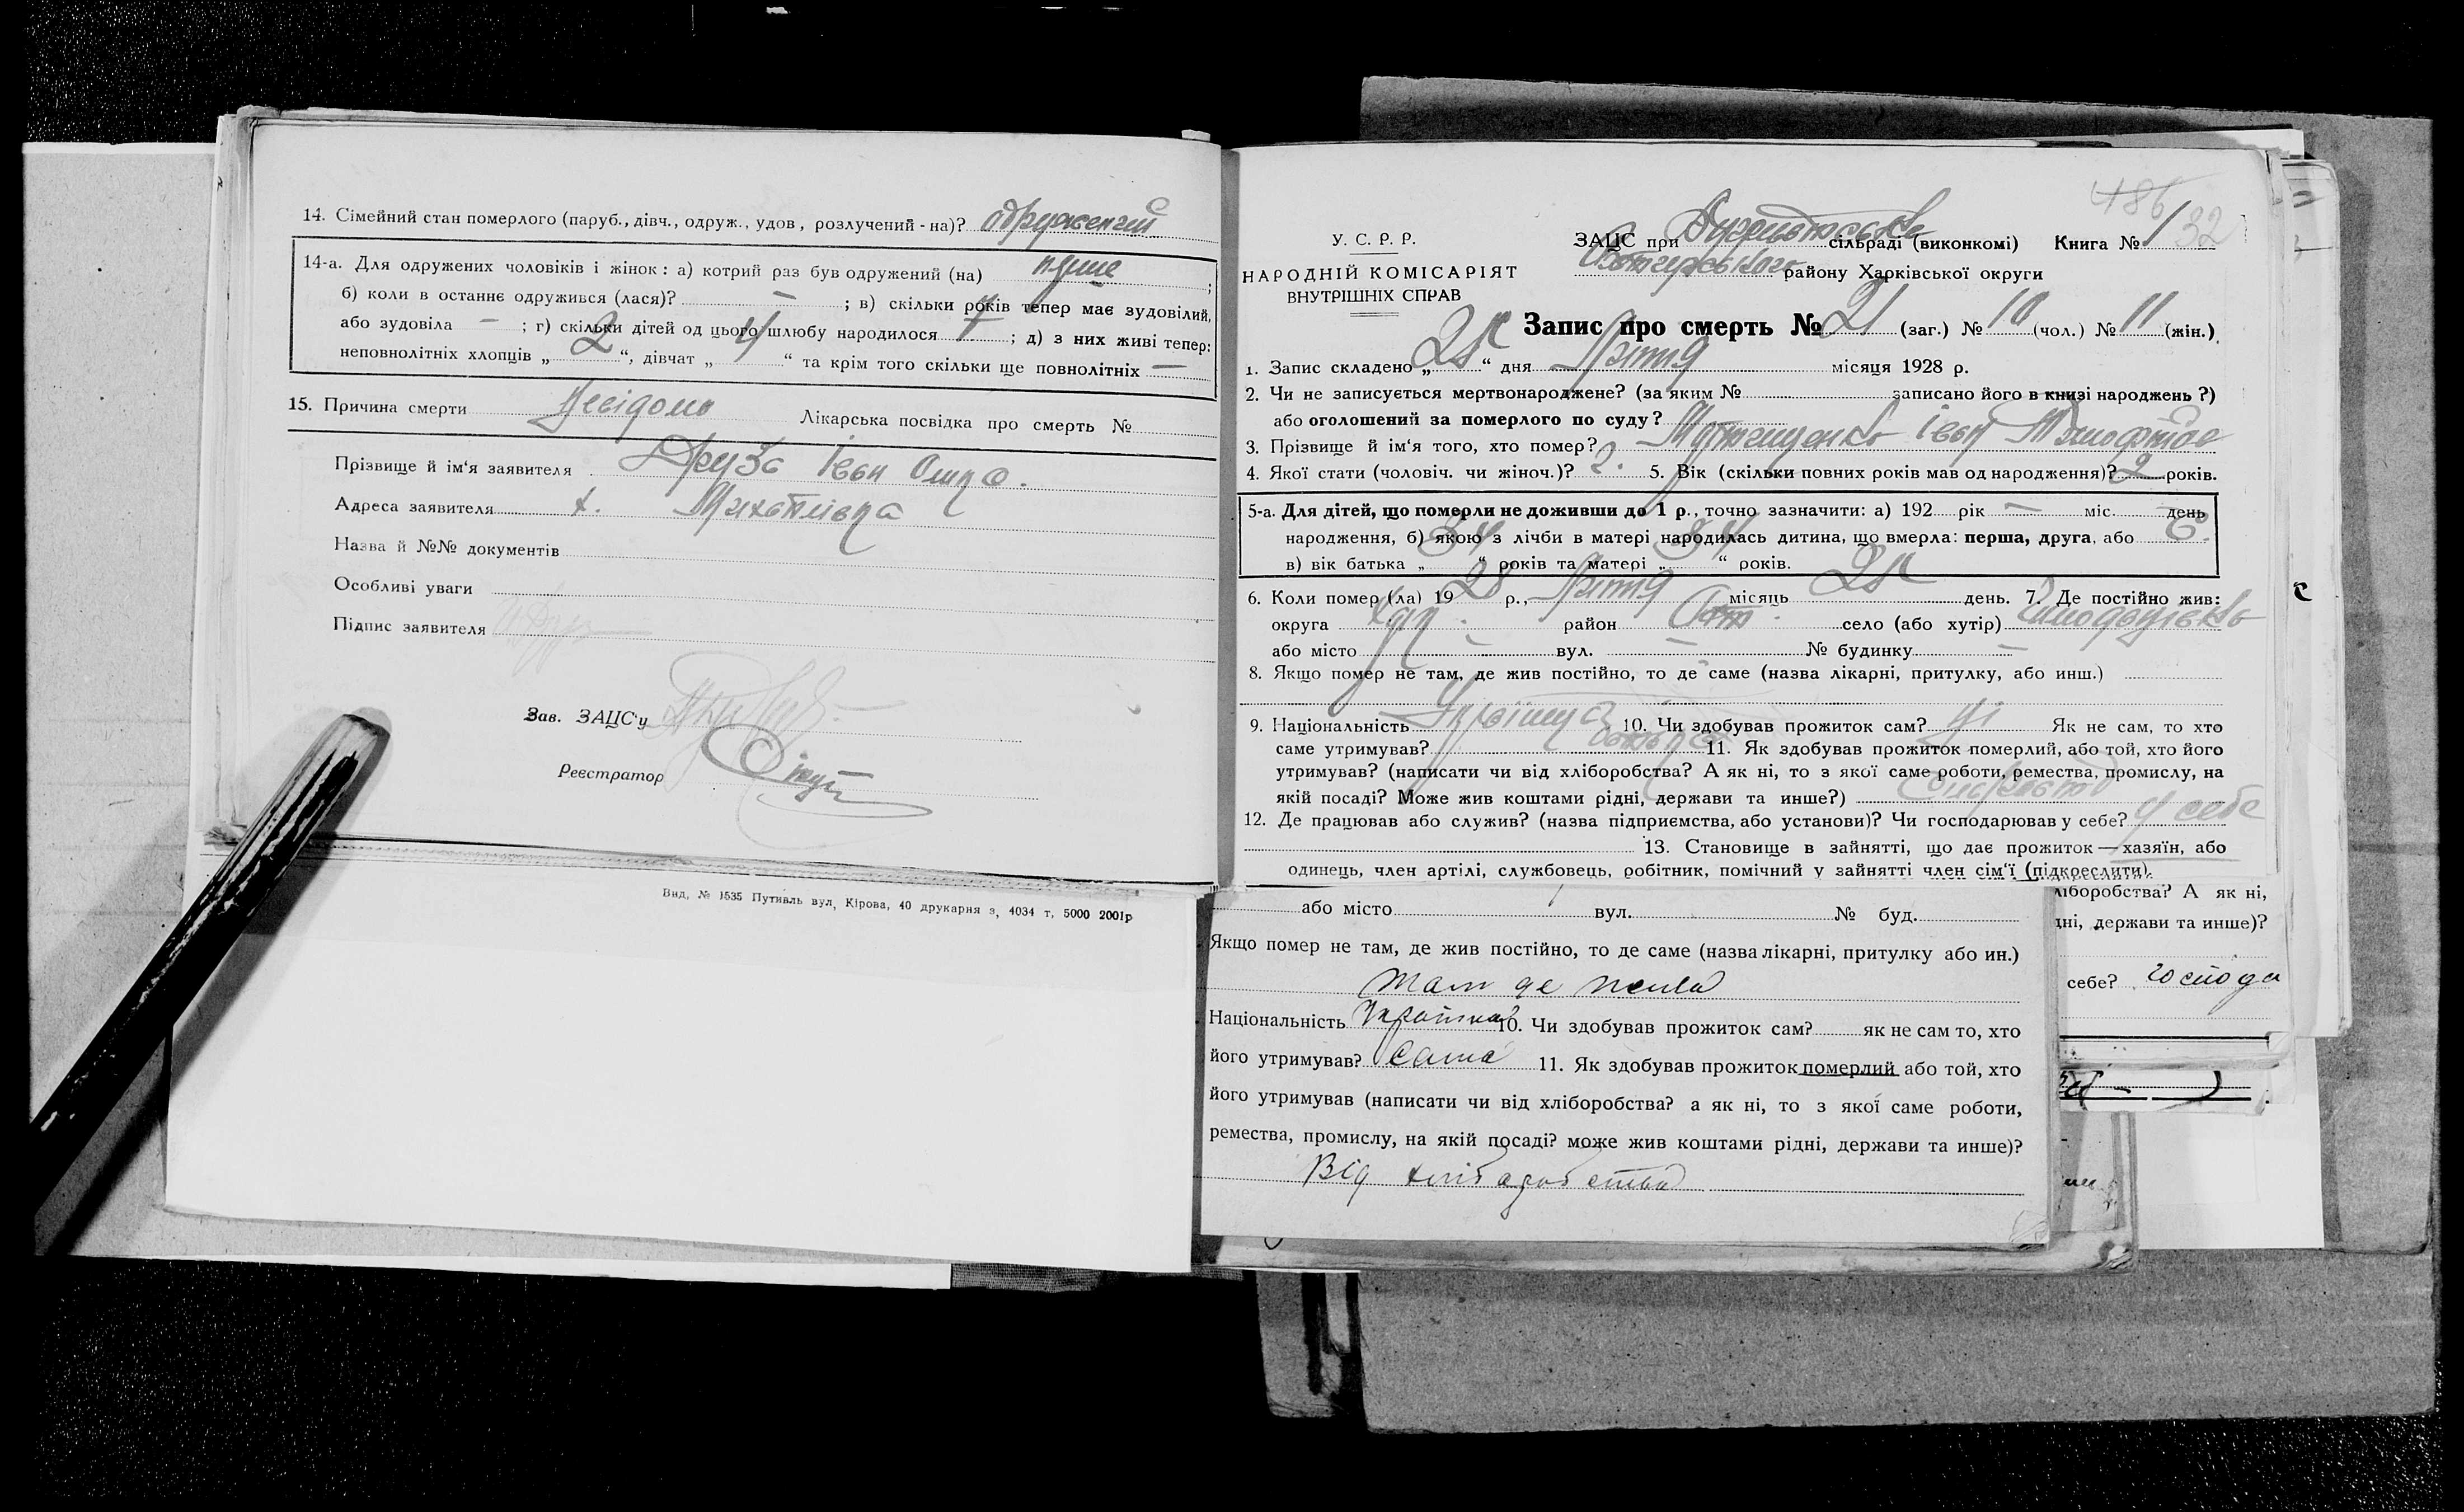 14. Сімейний стан померлого (паруб., дівч., одруж., удов, розлучений - на)? одружений
14-а. Для одружених чоловіків і жінок: а) котрий раз був одружений (на) перше ;
б) коли в останнє одружився (лася)? — ; в) скільки років тепер має зудовілий,
або зудовіла — ; г) скільки дітей од цього шлюбу народилося 7 ; д) з них живі тепер:
неповнолітніх хлопців „ 2 “, дівчат „ 4 “ та крім того скільки ще повнолітніх —
15. Причина смерти Невідомо Лікарська посвідка про смерть №
Прізвище й ім‘я заявителя Іван
Адреса заявителя х.
Назва й №№ документів
Особливі уваги
Підпис заявителя
Зав. ЗАЦС‘у
Реєстратор
Вид, № 1535 Путивль вул, Кірова, 40 друкарня з, 4034 т, 5000 2001р
486
32
У. С. Р. Р.
НАРОДНІЙ КОМІСАРІЯТ
ВНУТРІШНІХ СПРАВ
ЗАЦС при сільраді (виконкомі) Книга № 1
району Харківської округи
Запис про смерть № 21 (заг.) № 10 (чол.) № 11 (жін.)
1. Запис складено „ “ дня місяця 1928 р.
2. Чи не записується мертвонароджене? (за яким № записано його в книзі народжень ?)
або оголошений за померлого по суду?
3. Прізвище й ім‘я того, хто помер? Іван
4. Якої стати (чоловіч. чи жіноч.)? 5. Вік (скільки повних років мав од народження)? 2 років.
5-а. Для дітей, що померли не доживши до 1 р., точно зазначити: а) 192 рік — міс. день
народження, б) якою з лічби в матері народилась дитина, що вмерла: перша, друга, або
в) вік батька „ 34 “ років та матері „ 34 “ років.
6. Коли помер (ла) 19 28 р., місяць день. 7. Де постійно жив:
округа Хар. район село (або хутір)
або місто — вул. — № будинку —
8. Якщо помер не там, де жив постійно, то де саме (назва лікарні, притулку, або инш.)
9. Національність 10. Чи здобував прожиток сам? Ні Як не сам, то хто
саме утримував? батько 11. Як здобував прожиток померлий, або той, хто його
утримував? (написати чи від хліборобства? А як ні, то з якої саме роботи, ремества, промислу, на
якій посаді? Може жив коштами рідні, держави та инше?)
12. Де працював або служив? (назва підприємства, або установи)? Чи господарював у себе? у себе
13. Становище в зайнятті, що дає прожиток — хазяїн, або
одинець, член артілі, службовець, робітник, помічний у зайнятті член сім‘ї (підкреслити).
або місто вул. № буд.
Якщо помер не там, де жив постійно, то де саме (назва лікарні, притулку або ин.)
там де жила
Національність Українка 10. Чи здобував прожиток сам? як не сам то, хто
його утримував? сама 11. Як здобував прожиток померлий або той, хто
його утримував (написати чи від хліборобства? а як ні, то з якої саме роботи,
ремества, промислу, на якій посаді? може жив коштами рідні, держави та инше)?
Від хліборобства
ліборобства? А як ні,
дні, держави та инше)?
себе? господа